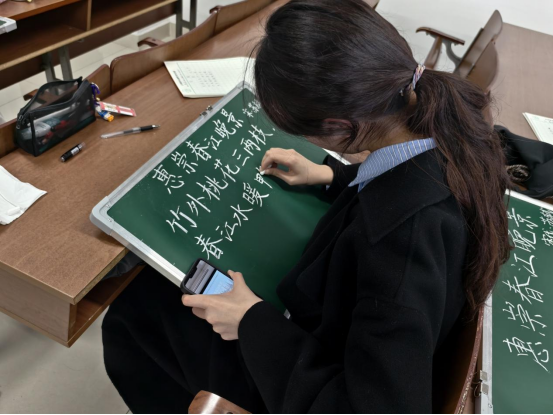 惠崇春江晚景
竹外桃花三两枝
春江水暖甲
惠崇春江晚景